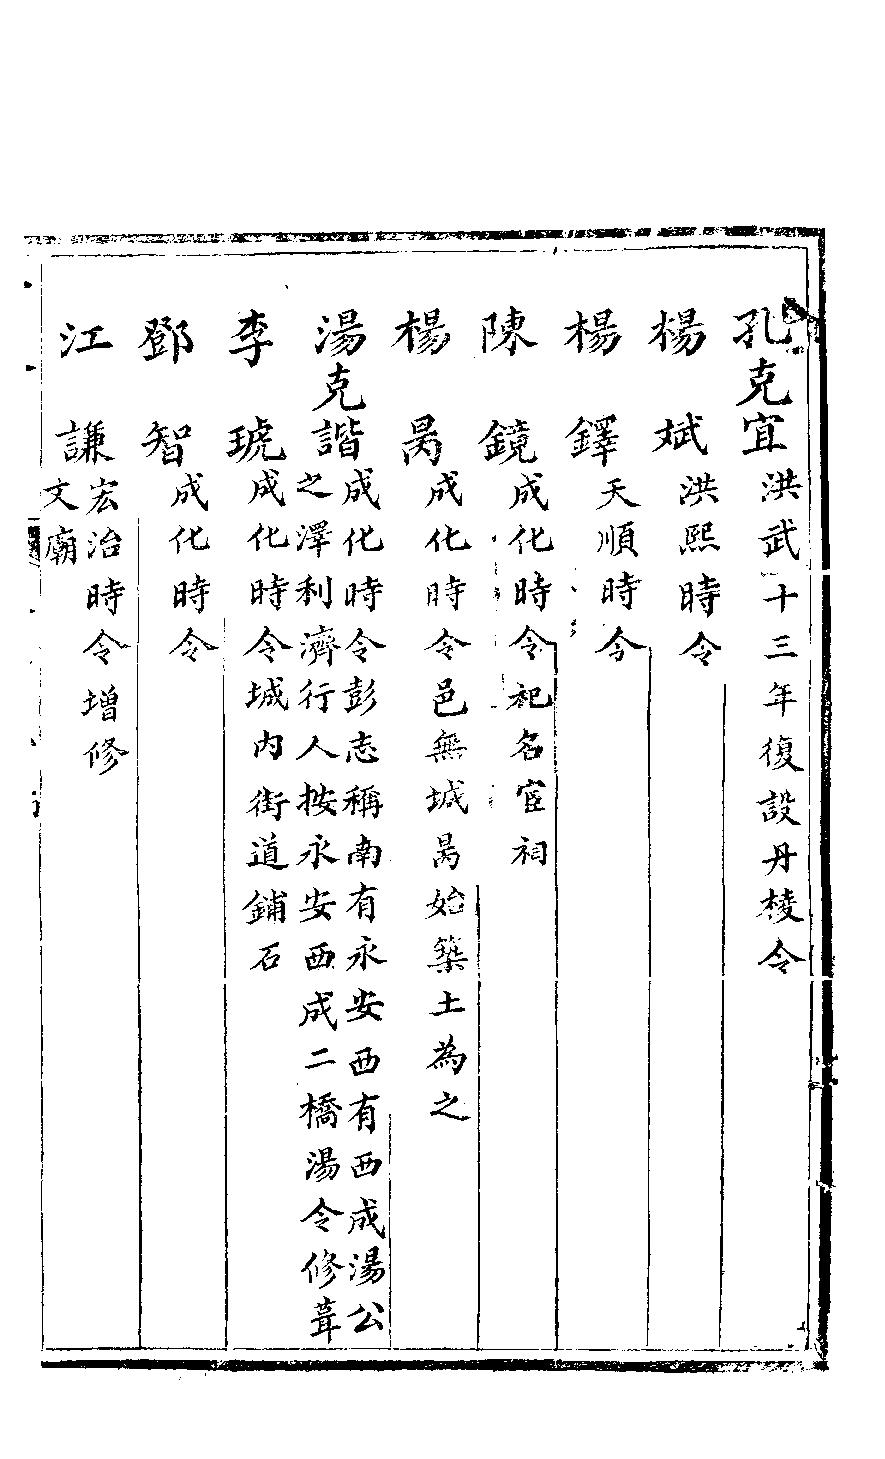 孔克宜 洪武十三年復設丹棱令
楊斌 洪熙時令
楊鐸 天順時令
陳鏡 成化時令祀名宦祠
楊昺 成化時令邑無城昺始築土為之
湯克諧 成化時令彭志稱南有永安西有西成湯公
之澤利濟行人按永安西成二橋湯令修葺
李琥 成化時令城內街道鋪石
鄧智 成化時令
江謙 宏治時令增修
文廟